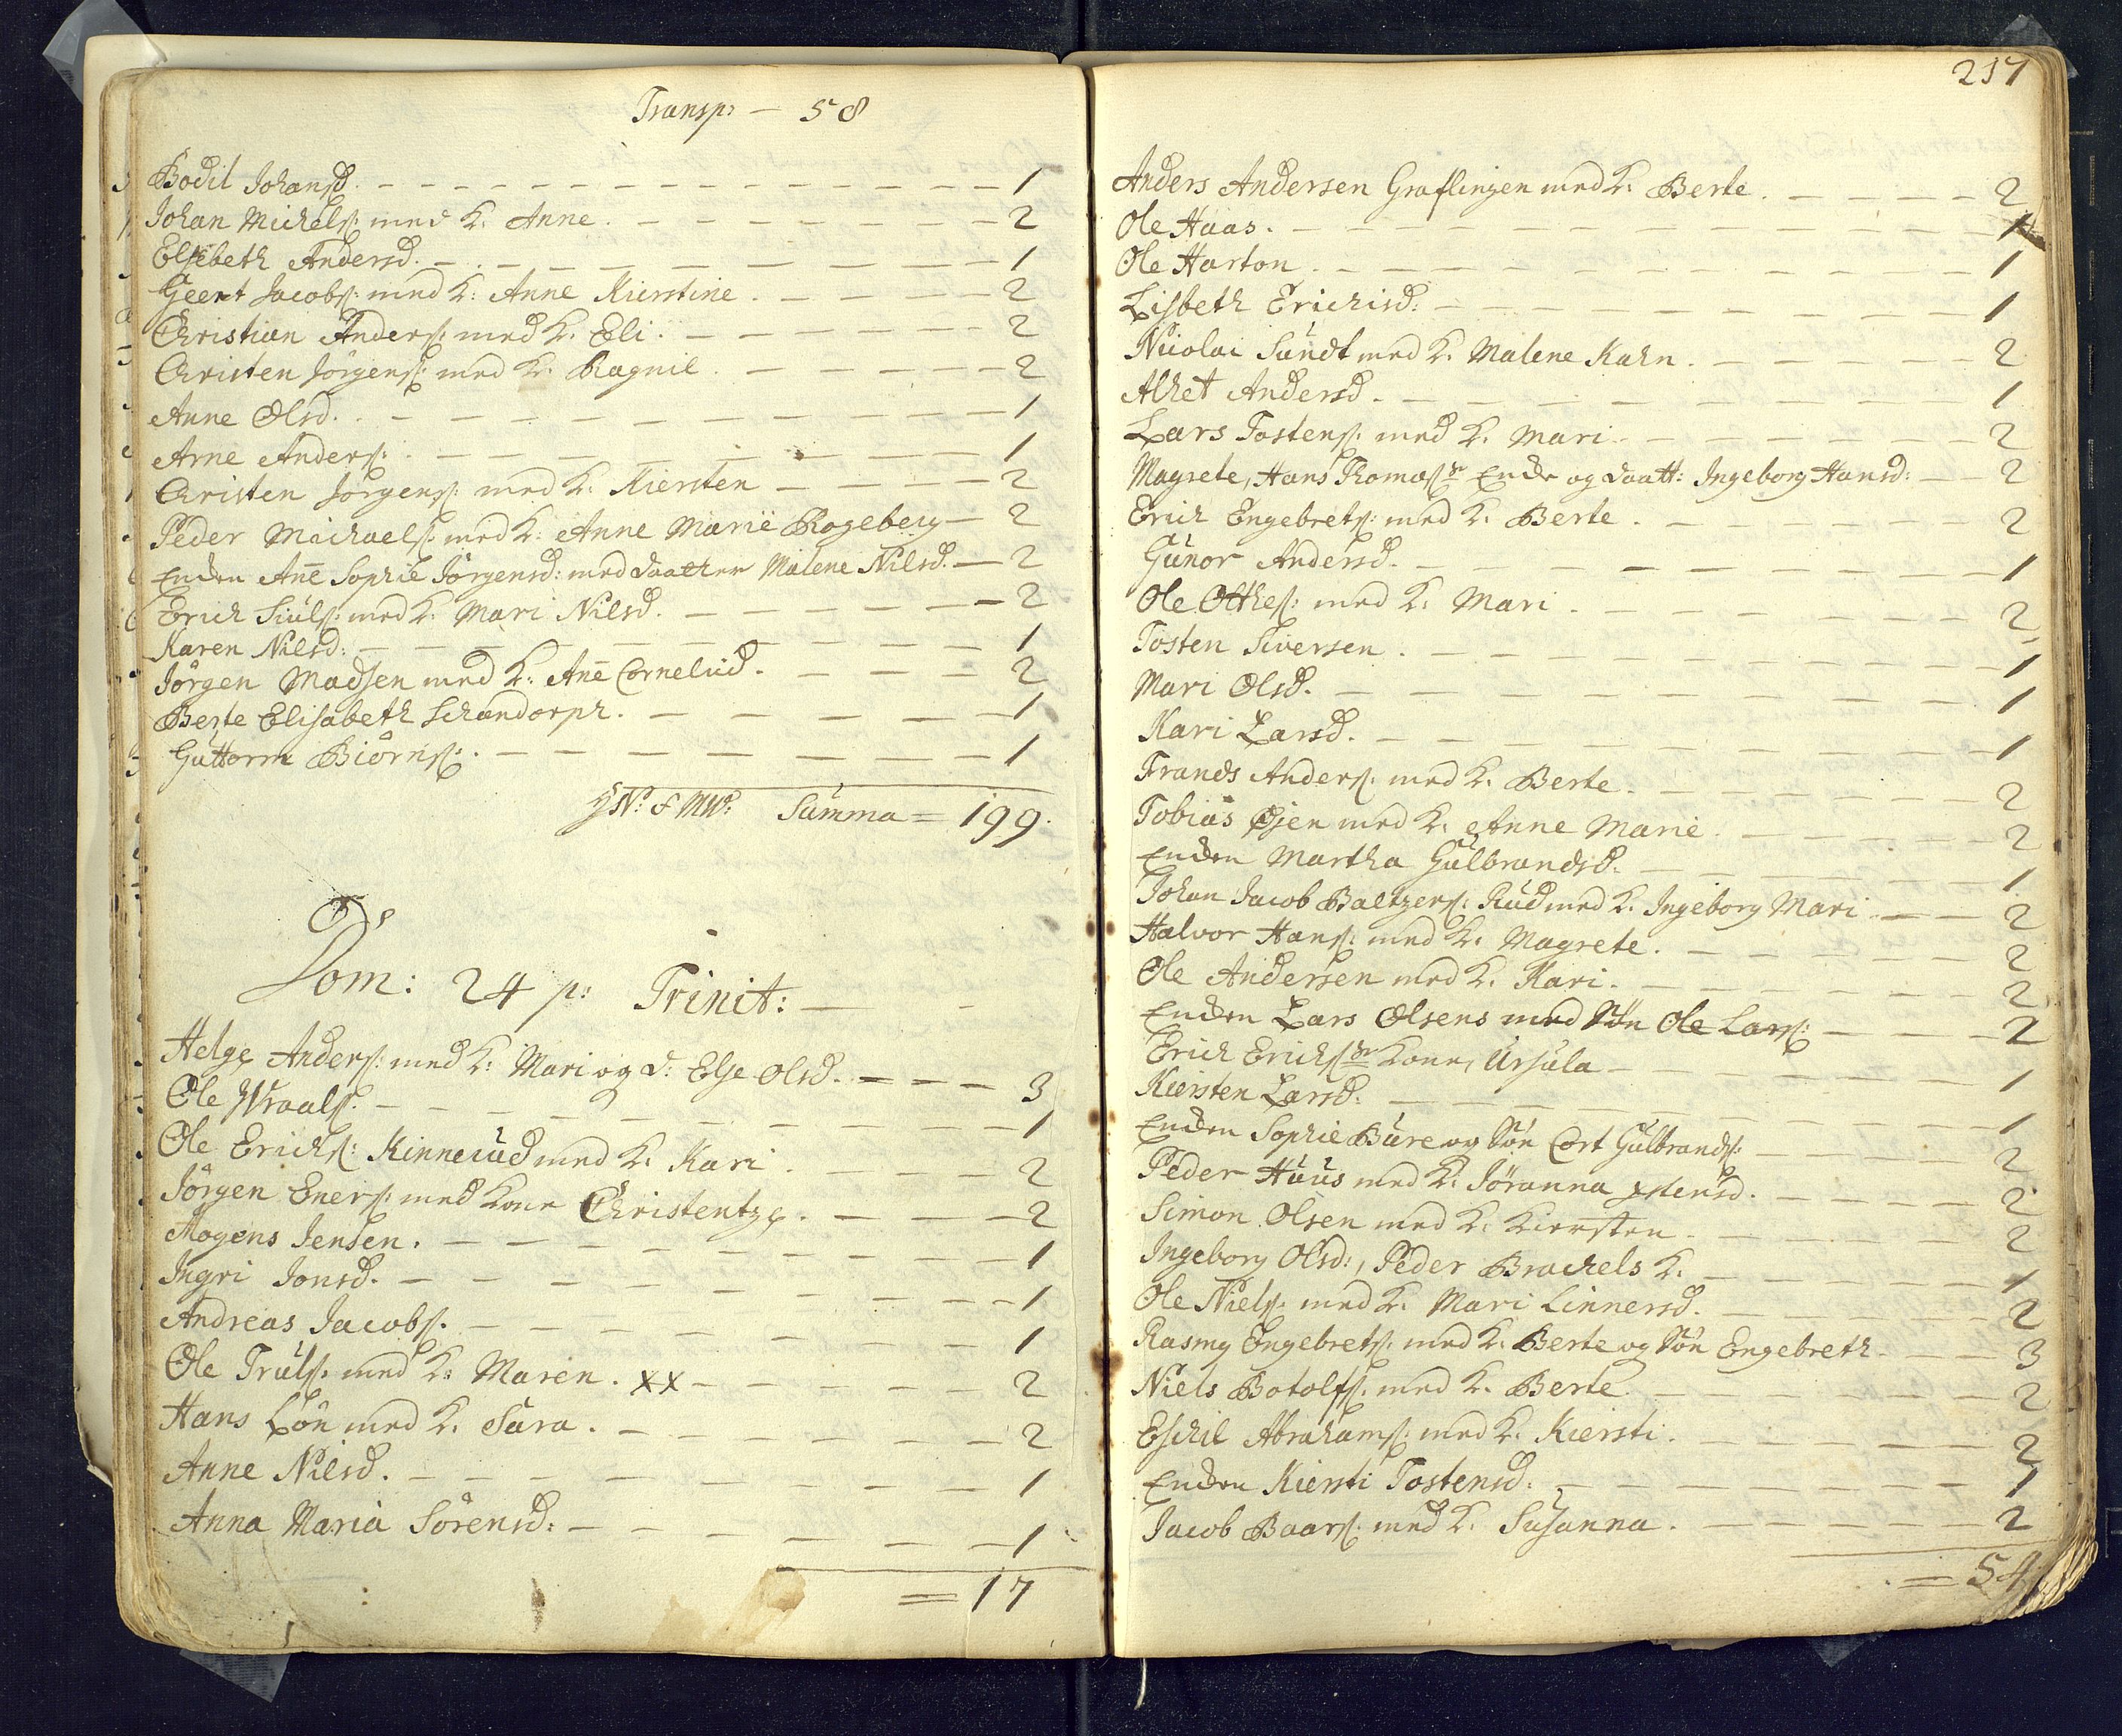 Transp: — 58
Bodil Johansd. 1
Johan Michels: med K. Anne. 2
Elsebeth Andersd. 1
Geert Jacobs: med K: Anne Kierstine. 2
Christian Anders: med K. Eli. 2
Christen Jörgens: med K. Ragnil. 2
Anne Olsd. 1
Arne Anders: 1
Christen Jörgens: med K. Kiersten 2
Peder Michaels: med K: Anne Marie Rogeberg 2
Enken Añe Sophie Jörgensd: med daatter Malene Nilsd. 2
Erich Siuls: med K. Mari Nilsd. 2
Karen Nilsd: 1
Jörgen Madsen med K: Añe Cornelsd. 2
Berte Elisabeth Schandorph. 1
Guttorm Biörns: 1
Summa = 199.
Dom: 24 p: Trinit:
Helge Anders: med K: Mari og d: Else Olsd. 3
Ole Wraals. 1
Ole Erichs: Kinnerud med K. Kari. 2
Jörgen Eners: med Kone Christentze. 2
Mogens Jensen. 1
Ingri Jonsd. 1
Andreas Jacobs. 1
Ole Truls: med K: Maren. xx 2
Hans Lön med K. Sara. 2
Anne Nilsd. 1
Anna Maria Sörensd: 1
= 17
217
Anders Andersen Graflingen med K: Berte. 2
Ole Haas. 1
Ole Harton. 1
Lisbeth Erichsd: 1
Nicolai Sundt med K. Malene Kahn. 2
Alhet Andersd. 1
Lars Tostens: med K. Mari. 2
Magrete, Hans Thomas: Enke og daatt: Ingeborg Hansd: 2
Erich Engebrets: med K. Berte. 2
Gunor Andersd. 1
Ole Othes: med K: Mari. 2
Tosten Siversen. 1
Mari Olsd. 1
Kari Larsd. 1
Frands Anders: med K. Berte. 2
Tobias Öjen med K. Anne Marie. 2
Enken Martha Gulbrandsd. 1
Johan Jacob Baltzers: Rud med K. Ingeborg Mari 2
Halvor Hans: med K. Magrete. 2
Ole Andersen med K. Kari. 2
Enken Lars Olsens med Sön Ole Lars: 2
Erich Erichs: Kone, Ursula 1
Kiersten Larsd: 1
Enken Sophie Bure og Sön Cort Gulbrands: 2
Peder Huus med K. Jöranna Ostensd. 2
Simon Olsen med K: Kiersten. 2
Ingeborg Olsd:, Peder Brachels K. 1
Ole Niels: med K. Mari Linnersd. 2
Rasmg Engebrets: med K. Berte og Sön Engebreth. 3
Niels Botolfs: med K. Berte. 2
Eschil Abrahams: med K. Kiersti. 2
Enken Kiersti Tostensd. 1
Jacob Baars: med K. Susanna. 2
= 54